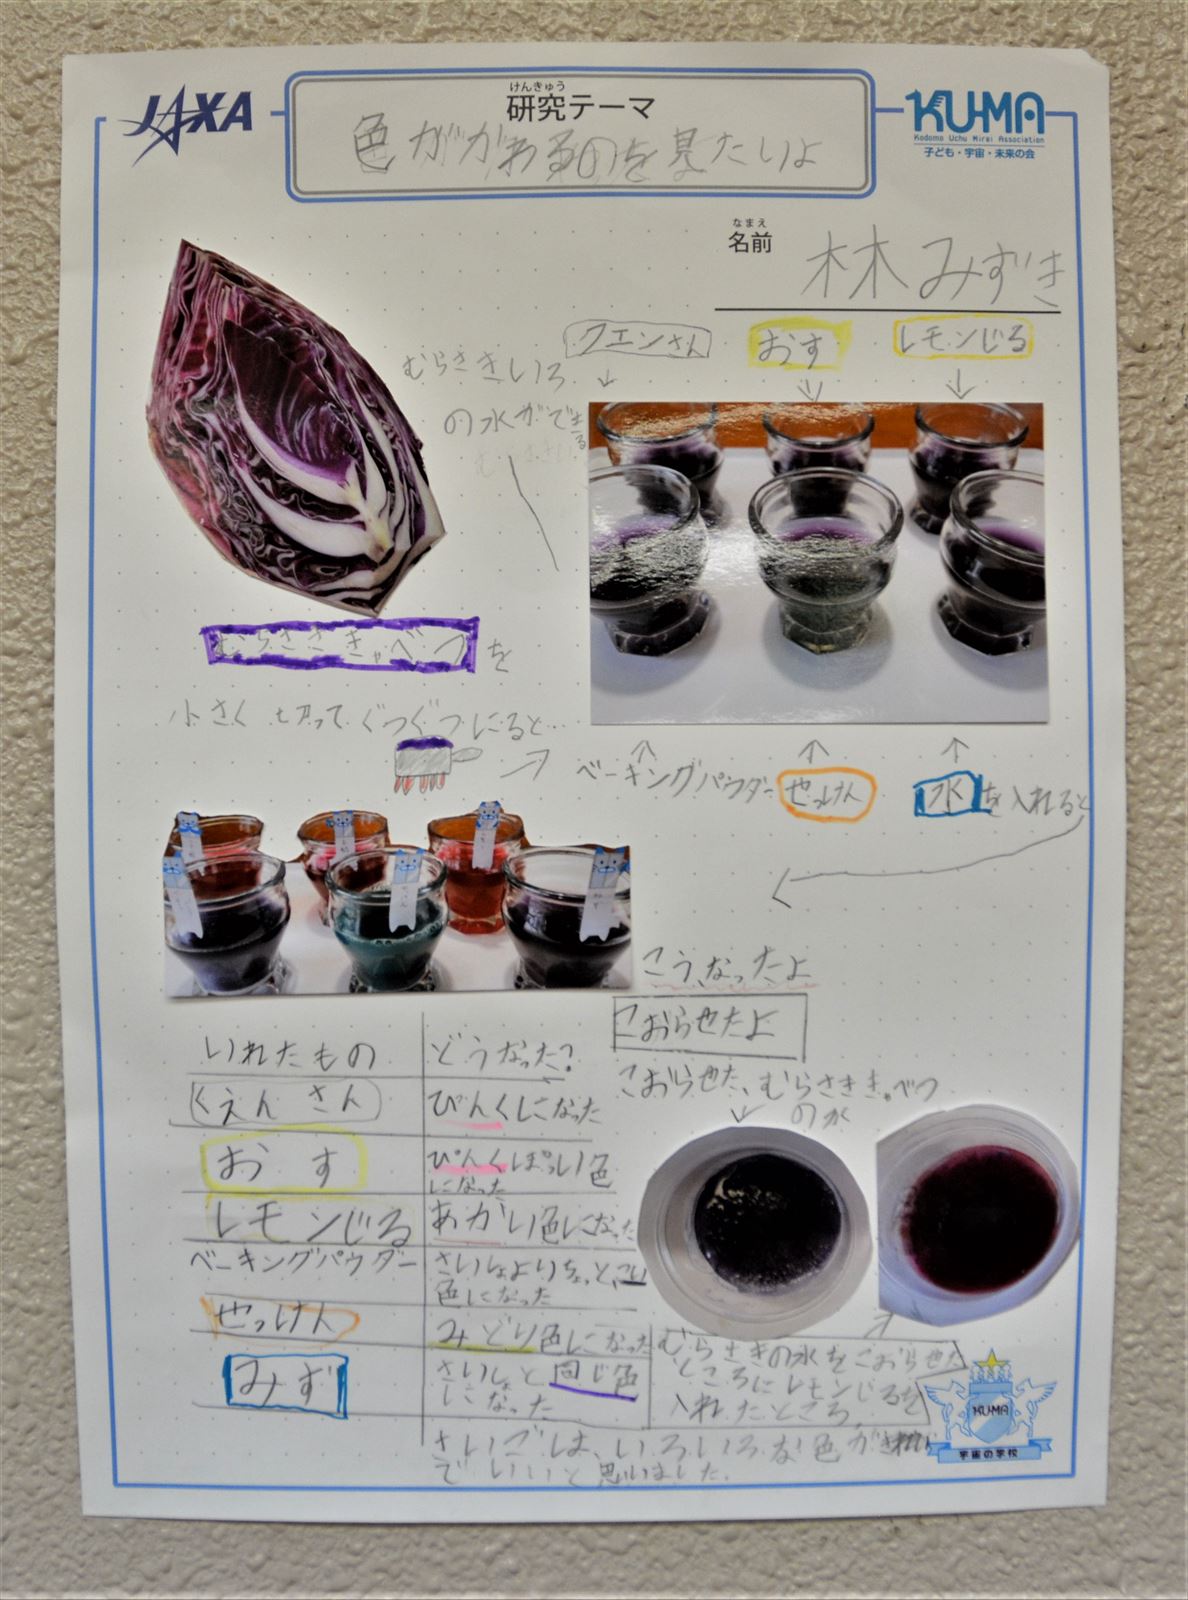 JAXA
けんきゅう
研究テーマ
KU-MA
Kodomo Uchu Mirai Association
子ども・宇宙・未来の会
色がかわるのを見たいよ
なまえ
名前
林みずき
クエンさん
おす
レモンじる
むらさきいろ
の水ができる
むらささきゃべつを
小さく切ってぐつぐつにると…
ベーキングパウダー
せっけん
水を入れると
こうなったよ
こおらせたよ
こおらせた、むらさききゃべつ
の水
いれたもの
どうなった?
くえんさん
ぴんくになった
おす
ぴんくぽっい色
になった
レモンじる
あかい色になった
ベーキングパウダー
さいしょよりちょっとこい
色になった
せっけん
みどり色になった
みず
さいしょと同じ色
になった
むらさきの水をこおらせた
ところにレモンじるを
入れたところ
さいごは、いろいろな色がきれい
でいいと思いました。
KUMA
宇宙の学校